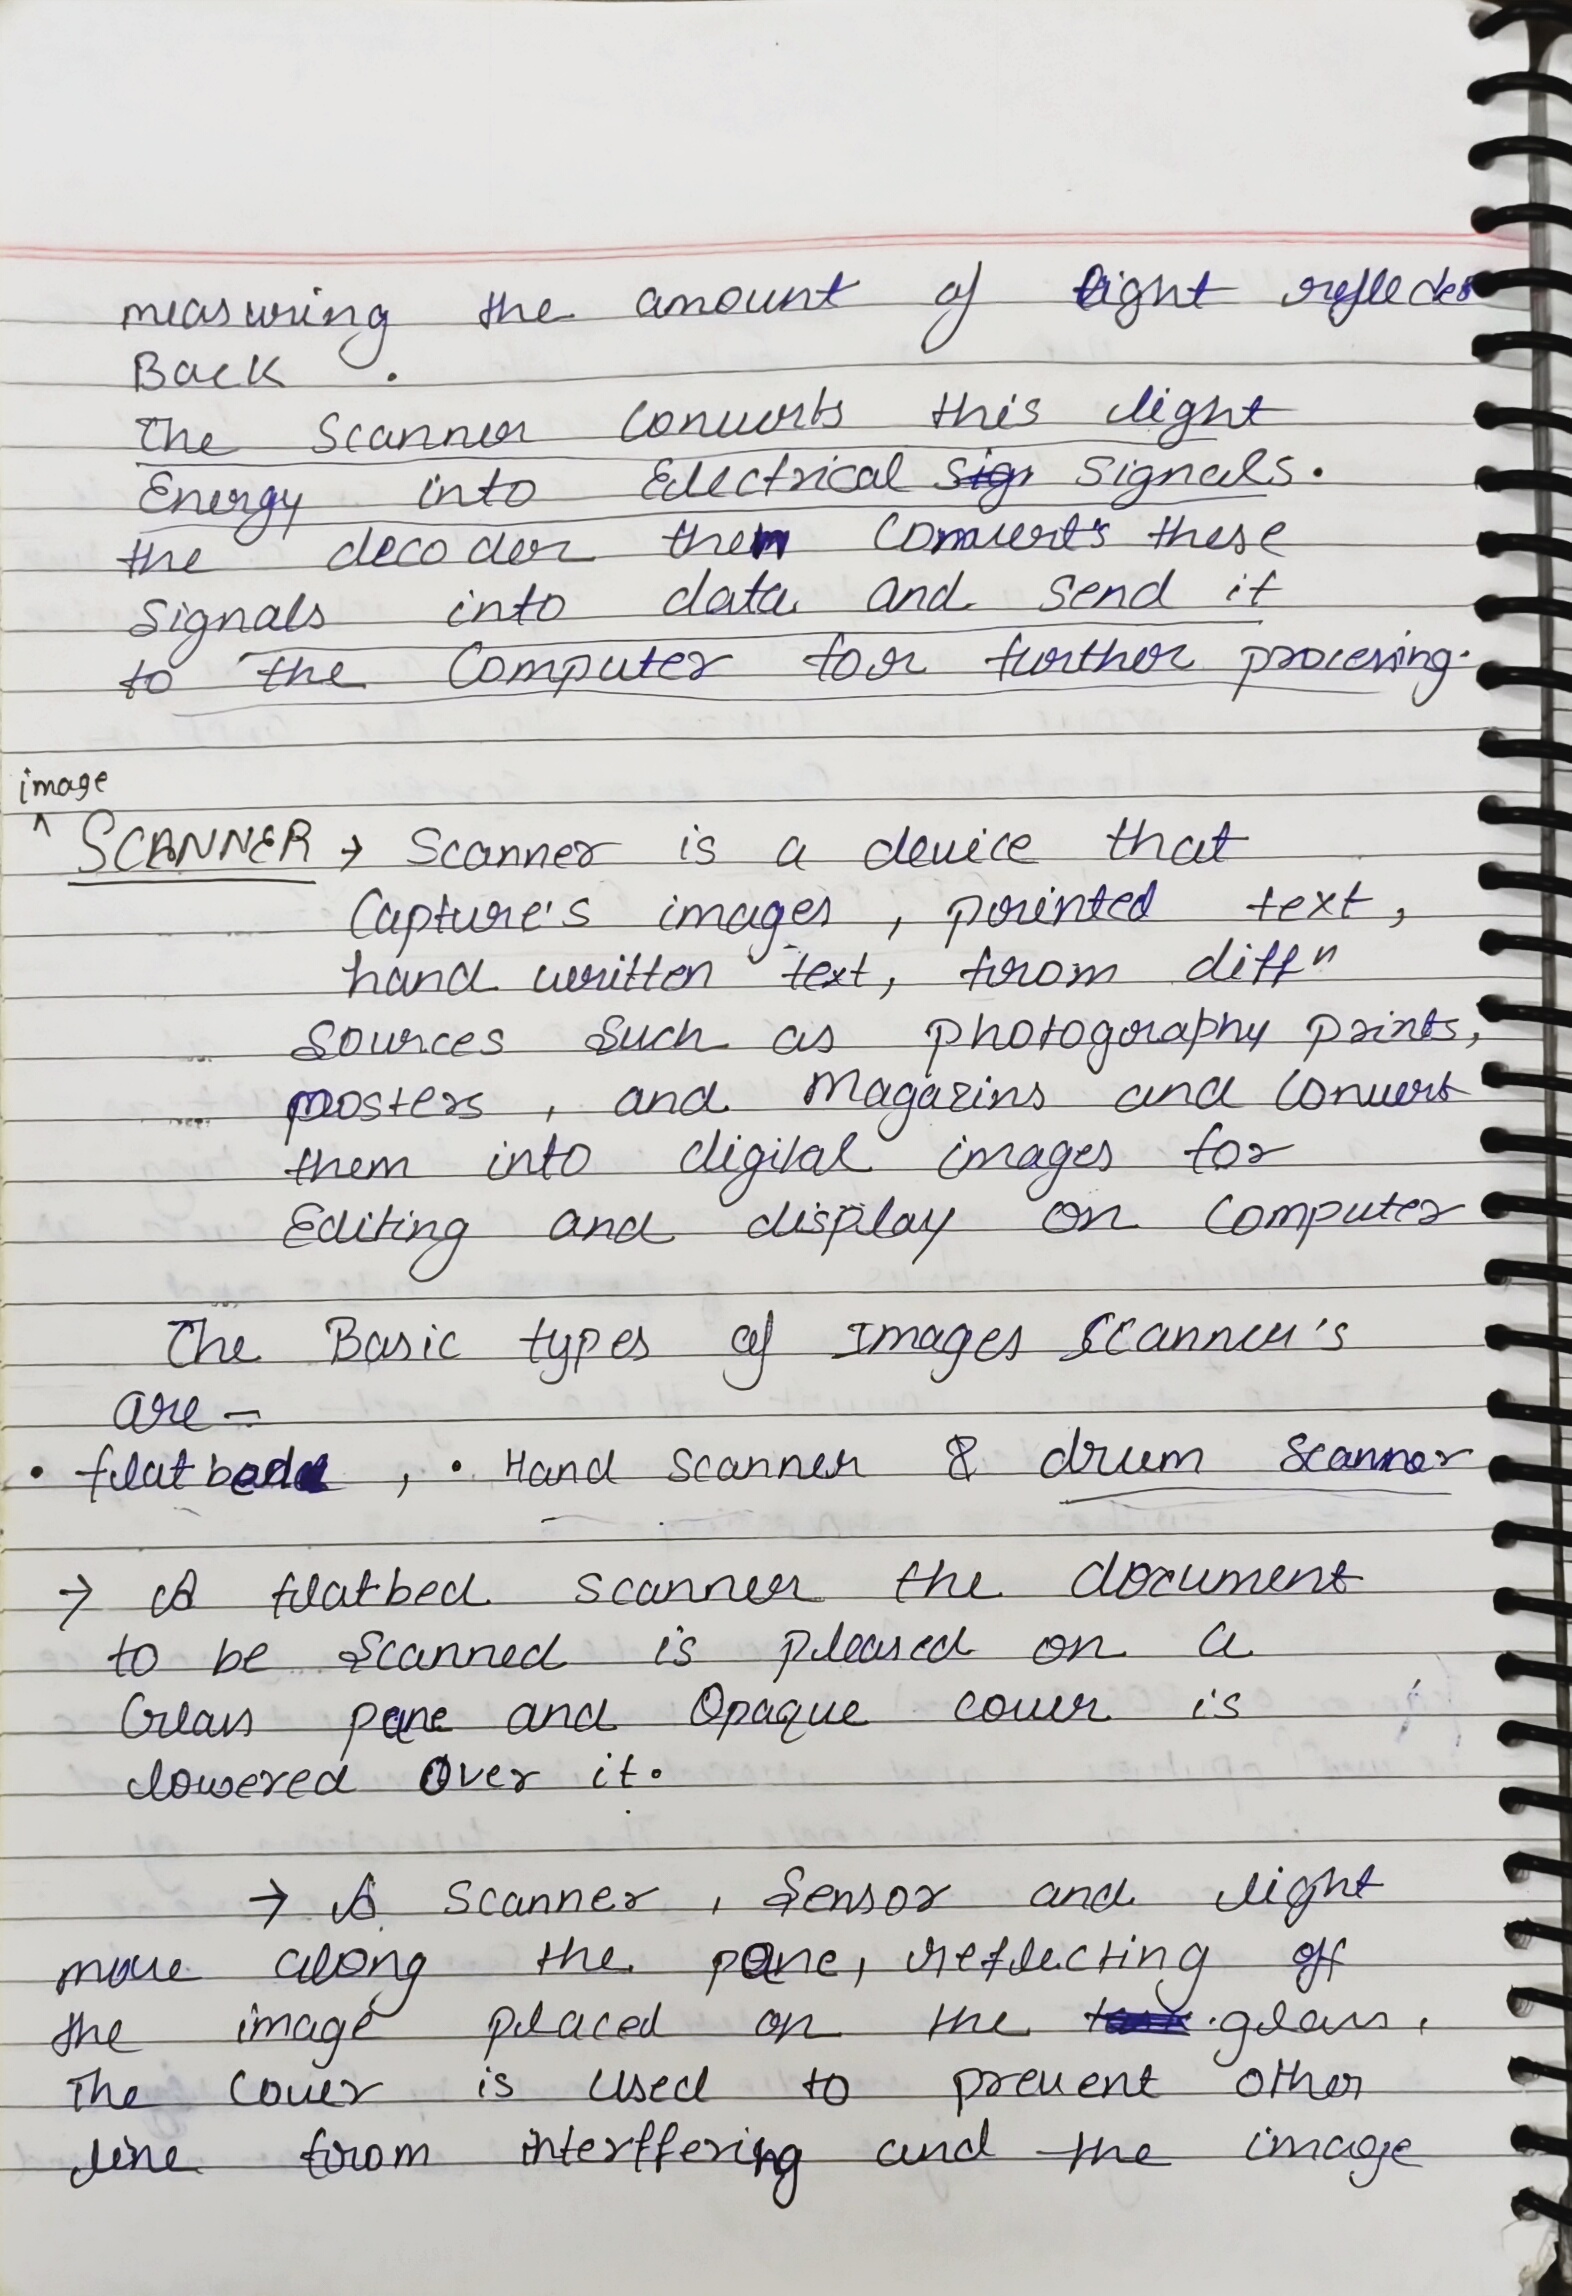 measuring the amount of light reflected
Back .
The Scanner Converts this light
Energy into Electrical sign Signals.
the decoder then Convert's these
Signals into data and Send it
to the Computer for further procesing.
image
^ SCANNER → Scanner is a device that
Capture's images , printed text,
hand written text, from diffn
Sources Such as photography prints,
posters , and Magazins and Convert
them into digital images for
Editing and display on Computer
The Basic types of Images Scanner's
are -
• flatbed , • Hand Scanner & drum Scanner
→ A flatbed scanner the document
to be Scanned is pleased on a
Glass pane and Opaque cover is
lowered Over it.
→ A Scanner , Sensor and light
move along the pane, reflecting off
the image placed on the glass .
The Cover is Used to prevent other
line from interffering and the image